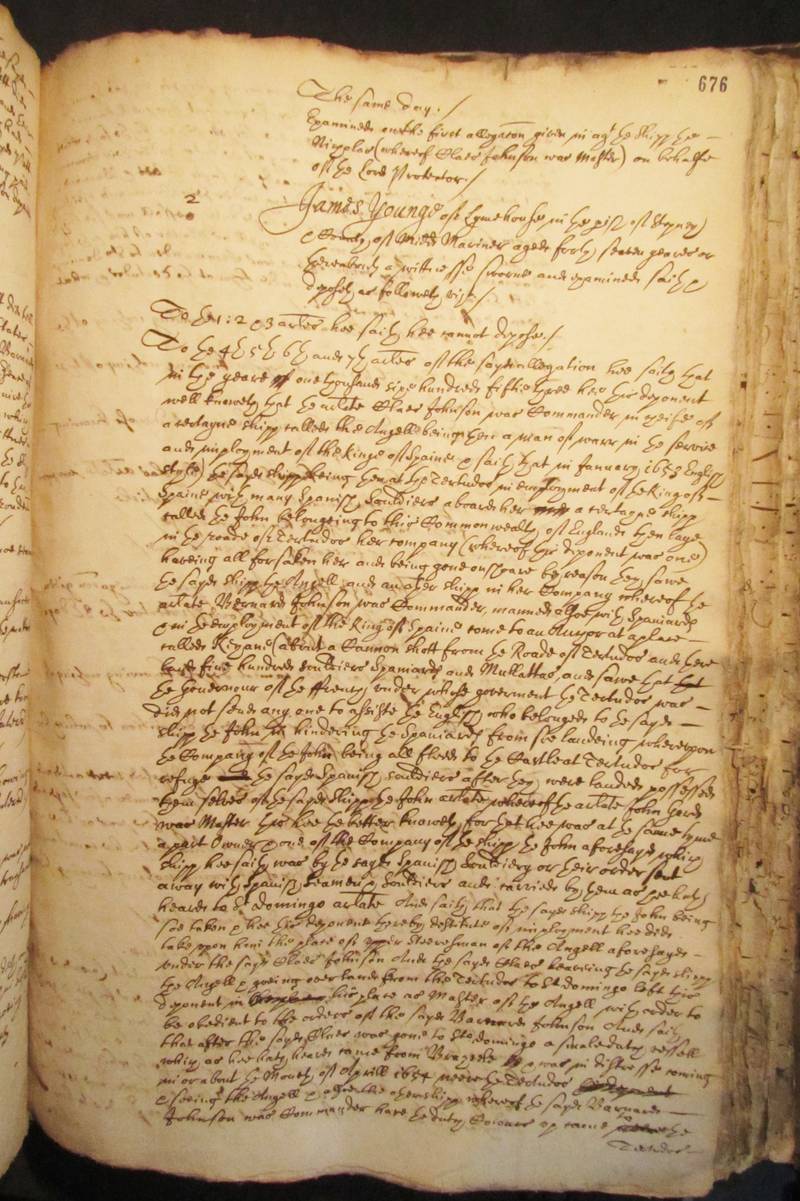 676
The same day./
Examined on the first allegaton given in agt the shipp the
Nicplas (whereof Claes Johnson was Master) on behalfe
of the Lord Protector./
2
James Younge of Lymehouse in the pish of Stepney
County of Midd Mariner aged forty seaven yeares or
thereabouts a wittnesse sworne and examined saith
deposeth as followeth vizt/
To the 1: 2 3 artes hee saith hee cannot depose./
To the 4th 5th 6th and 7th artes of the sayd allegation hee saith that
in the yeare one thousand sixe hundred fiftie three hee this deponent
well knoweth that the arlate Claes Johnson was Commander in cheife of
a certayne shipp called the Angell being then a man of warr in the service
and imployment of the Kinge of Spaine saith that in January 1653 English
style) the sayd shipp being then at the Tertudos in employment of the King of
Spaine with many Spanish souldiers aboard her a certayne shipp
called the John belongeing to this Common wealth of England then laye
in the roade of Tertudos her company (whereof this deponent was one)
haveing all forsaken her and being gone on shoare by reason they sawe
the sayd shipp the Angell and another shipp in her Company whereof the
arlate Bernard Johnson was Commander, manned alsoe with Spaniards
in the employment of the King of Spaine come to an Anchor at a place
called Keyane (about a Cannon shott from the Roade of Tertudos and there
five hundred souldiers Spaniards and Mullattas, and sawe that
the Governour of the ffrench under whose goverment the Tertudos was
did not send any one to assiste the English who belonged to the sayd
shipp the John in hindering the Spaniards from soe landeing whereupon
the Company of the John being all fleed to the Castle at Tertudos for
refuge the sayd Spanish souldiers after they were landed possessed
them selves of the sayd shipp the John arlate whereof the arlate John
was Master this hee the better knoweth for that hee was at the same tyme
a part Owner one of the Company of the shipp the John aforesayd which
shipp hee saith was by the sayd Spanish souldiers or their order sent
away with Spanish seamen souldiers and carried by them as hee hath
heard to St domingo arlate And saith that the sayd shipp the John being
soe taken hee this deponent thereby destitute of imployment hee did
take uppon him the place of Steersman of the Angell aforesayd
under the sayd Claes Johnson And the sayd Claes leaveing the sayd shipp
the Angell goeing over land from the Tertudos to St domingo left this
deponent in his place as Master of the Angell with order to
be obedient to the orders of the sayd Barnard Johnson And saith
that after the sayd Claes was gone to Sto domingo a smale dutch vessell
which as hee hath heard came from Brazeele was in distresse coming
in or about the Moneth of Aprill 1654 neere the Tertudos
seeing the Angell the other shipp whereof the sayd Barnard
Johnson was Commander have the dutch Colours up came the
Tertudos